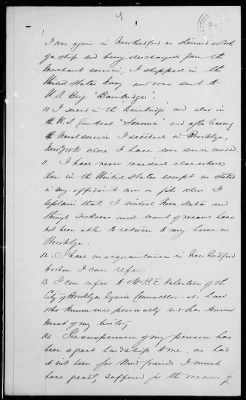 I was again in New Bedford as steward of
ship and being discharged from the
merchant service, I shipped in the
United States Navy and was sent to
U.S. Brig "Bainbridge"
10 I served in the Bainbridge and also in
the U.S. Gunboat "Sonoma" and after leaving
the Naval service I settled in Brooklyn
New York where I have ever since resided
11. I have never resided elsewhere
than in the United States except as stated
in my affidavit now on file where I
explain that I visited
through sickness and want of means have
not been able to return to my home in
Brooklyn
12. I have no acquaintances in New Bedford
to whom I can refer
13 I can refer to Mr. E. Valentine of the
City of Brooklyn Counsellor at Law
who knows me personally and has known
most of my history
14. The suspension of my pension has
been a great hardship to me, as had
it not been for kind friends I must
have greatly suffered for the means of